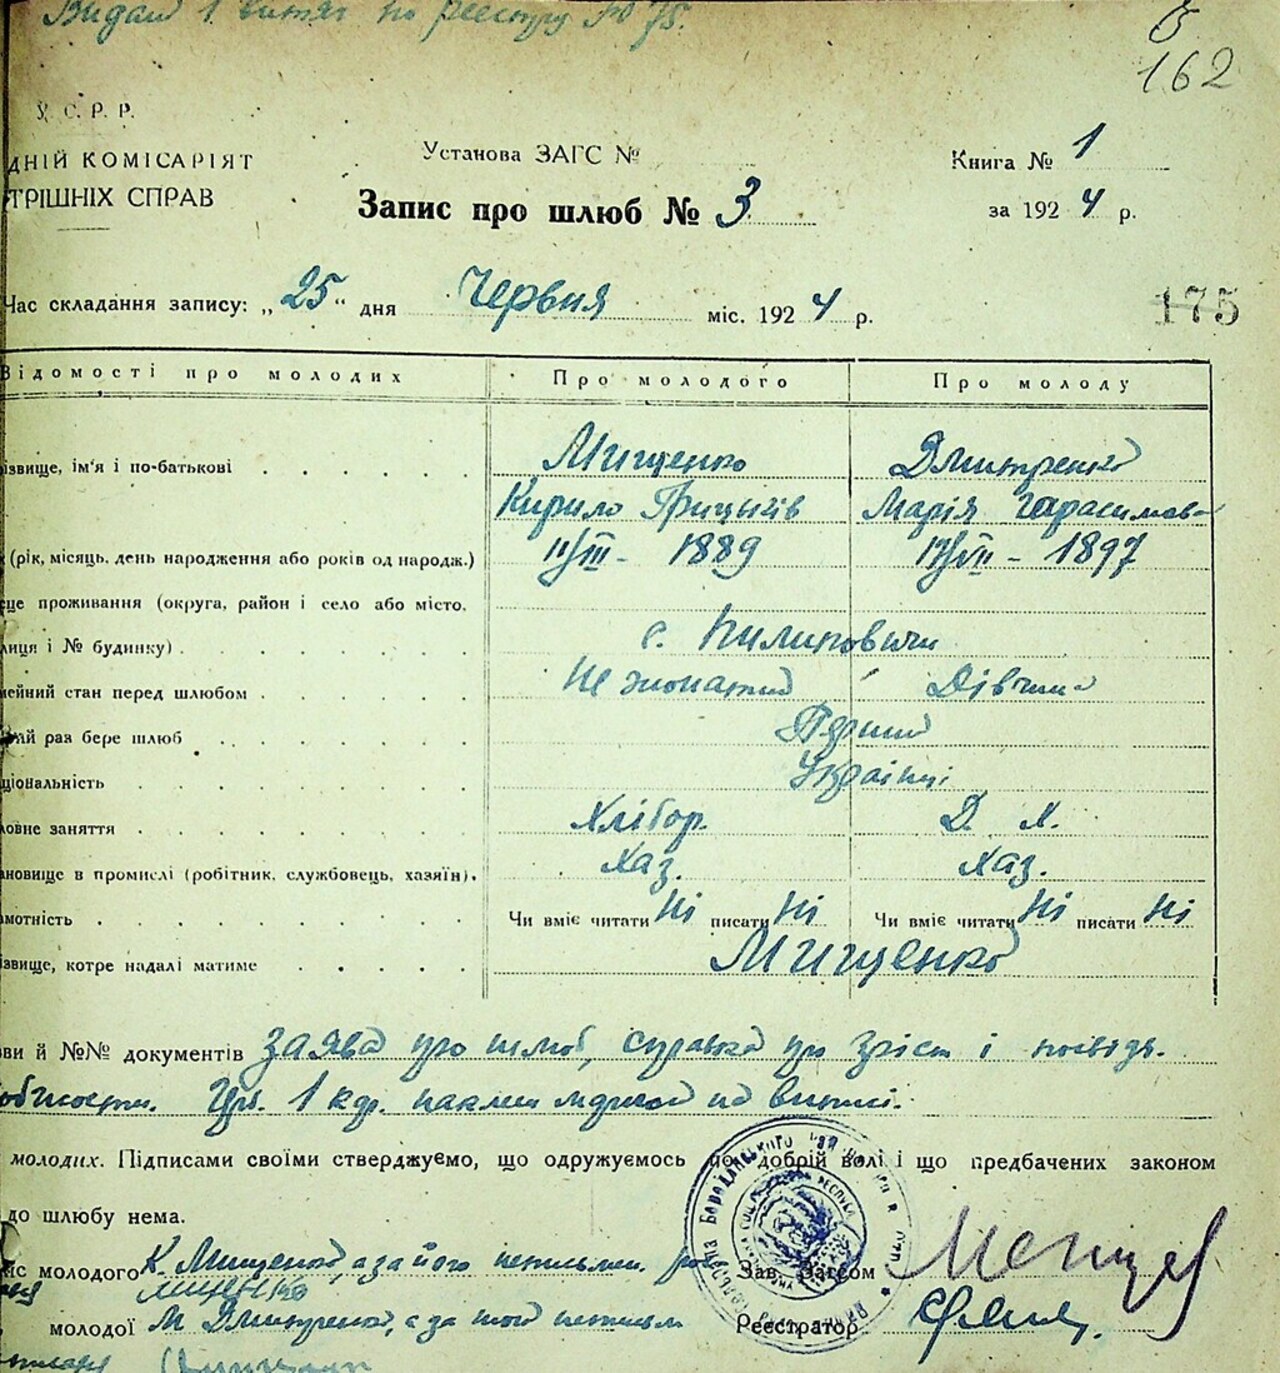 Видан 1 витяг по реестру № 75.
162
У. С. Р. Р.
ДНІЙ КОМІСАРІЯТ
ТРІШНІХ СПРАВ
Установа ЗАГС №
Книга № 1
Запис про шлюб № 3
за 1924 р.
Час складання запису: „25“ дня Червня міс. 1924 р.
175
Відомості про молодих Про молодого Про молоду
ізвище, ім'я і по-батькові Мищенко Дмитренко
Кирило Грицьків Марія Гарасимов
(рік, місяць, день народження або років од народж.) 11/III - 1889 17/VII - 1897
це проживання (округа, район і село або місто,
лиця і № будинку) с. Пилиповичи
мейний стан перед шлюбом Не жонатий Дівчина
ий раз бере шлюб Перший
ціональність Українці
ловне заняття Хлібор. Д. Х.
ановище в промислі (робітник, службовець, хазяїн). Хаз. Хаз.
амотність Чи вміє читати Ні писати Ні Чи вміє читати Ні писати Ні
ізвище, котре надалі матиме Мищенко
ви й №№ документів Заява про шлюб, справка пр зріст і посвідч.
1 кр.
молодих. Підписами своїми стверджуємо, що одружуємось по добрій волі і що предбачених законом
до шлюбу нема.
ис молодого К. Мищенко, а за його неписьмен. Зав. Загсом
молодої М Дмитренко, а за неписьм Реєстратор